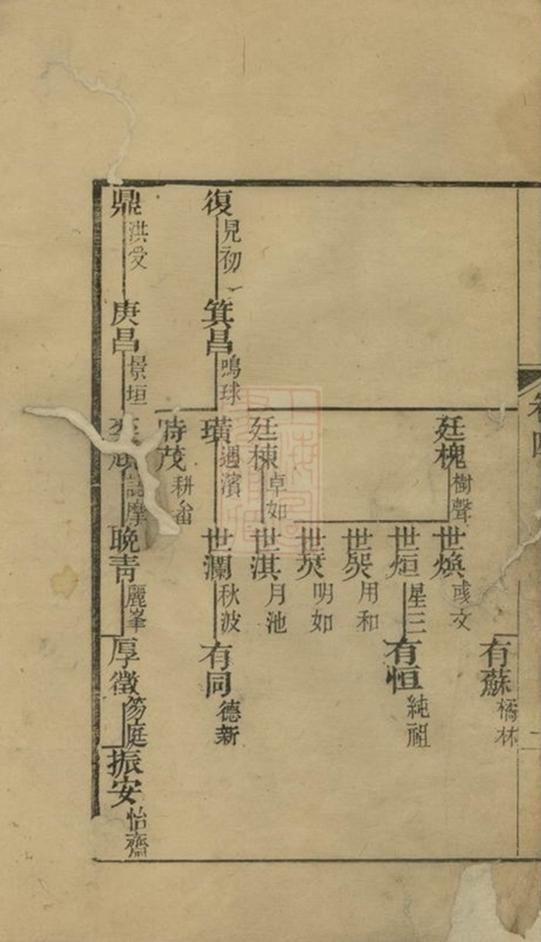 卷四
有蘇 橘林
廷槐 樹聲
世煥 彧文
世烜 星三
有恒 純祖
用和
明如
廷棟 卓如
世淇 月池
復 見初
箕昌 鳴球
璜 遇濱
世瀾 秋波
有同 德新
時茂 耕畬
鼎 洪受
庚昌 景垣
摩
晚青 麗峯
厚徵 笏庭
振安 怡齋